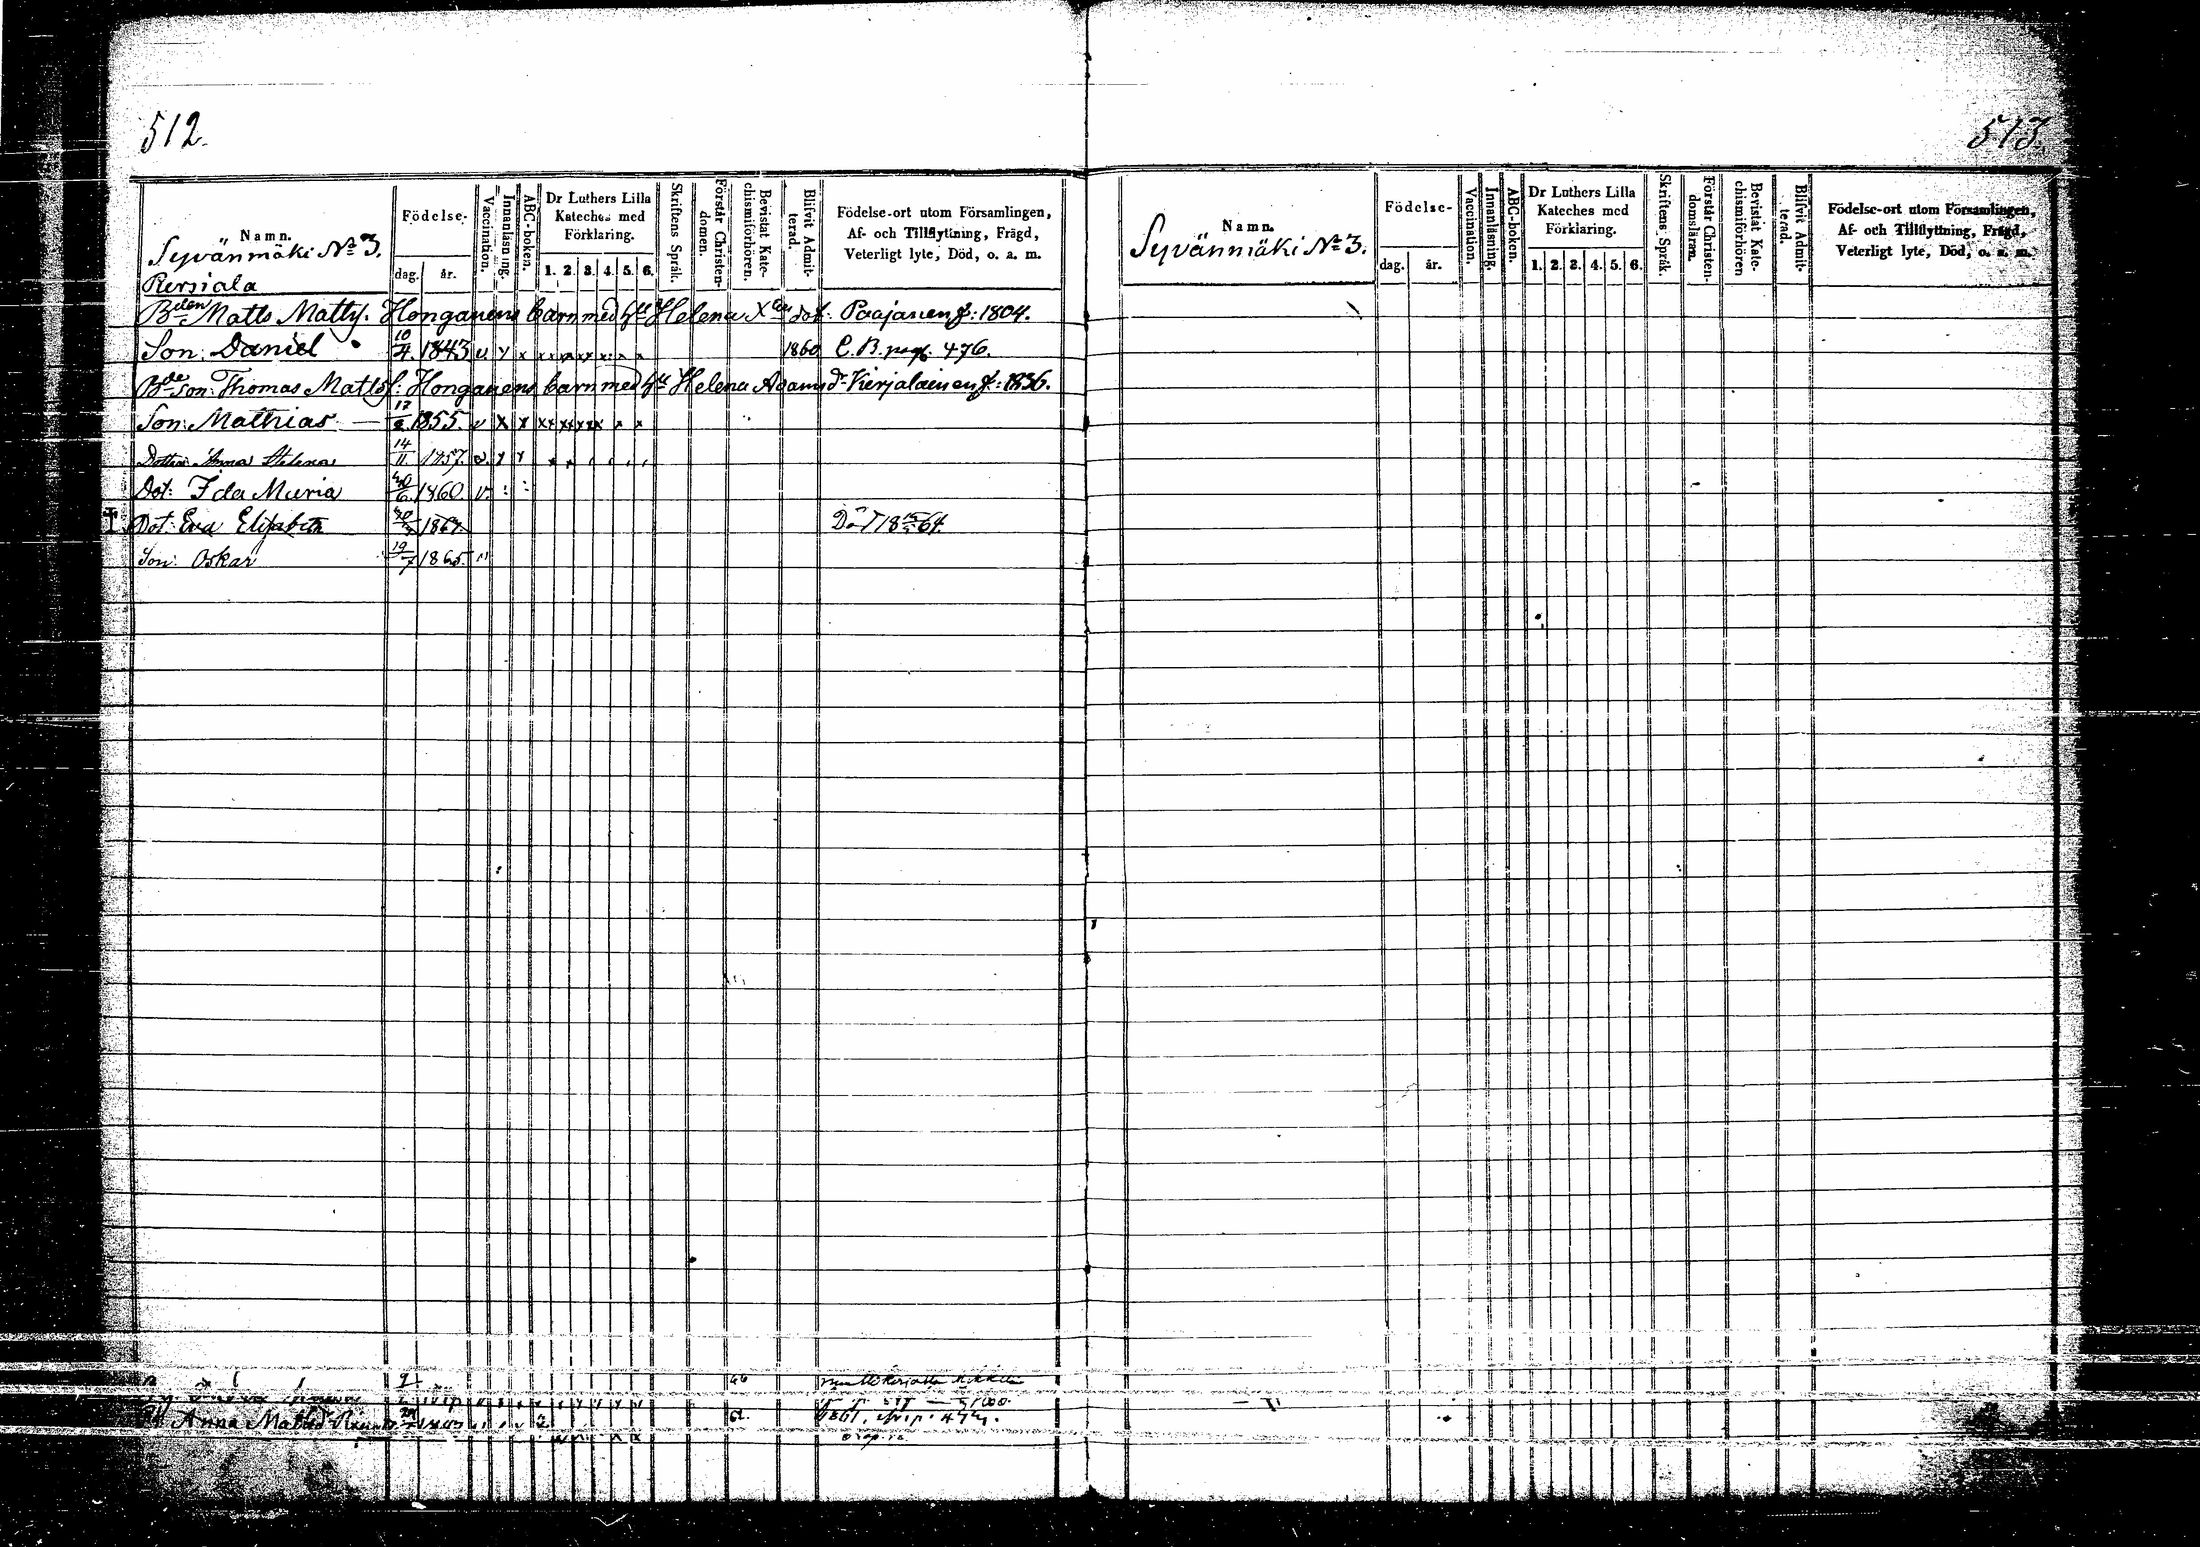 512.
Namn.
Syvänmäki No 3.
Piersiala
Födelse-
dag. år.
Vaccination.
Innanläsning.
ABC-boken.
Dr Luthers Lilla
Kateches med
Förklaring.
1. 2. 3. 4. 5. 6.
Skriftens Språk.
Förstår Christen-
domen.
Bevistat Kate-
chismiförhören.
Blifvit Admit-
terad.
Födelse-ort utom Församlingen,
Af- och Tillflyttning, Frägd,
Veterligt lyte, Död, o. a. m.
Bden Matts Matts. Honganens barn med hu Helena Xters dot. Paajanen f: 1804.
Son: Daniel 10/4. 1843 v x x x x x x x x x 1860 C.B. pag. 476.
Bde Son: Thomas Matts: Honganens barn med hu Helena Adams dr Kierjalainen f: 1836.
Son: Mathias 17 1855. v x x x x x x x x
Dotter Anna Helena 14/11. 1857. v.
Dot: Ida Maria 6. 1860. v.
† Dot: Eva Elisabeth 20 1864. Död 18 64.
Son: Oskar 19/7 1865. v
Anna Matsd. 62. 1861.
513.
Namn.
Syvänmäki No 3.
Födelse-
dag. år.
Vaccination.
Innanläsning.
ABC-boken.
Dr Luthers Lilla
Kateches med
Förklaring.
1. 2. 3. 4. 5. 6.
Skriftens Språk.
Förstår Christen-
domsläram.
Bevistat Kate-
chismiförhören
Blifvit Admit-
terad.
Födelse-ort utom Församlingen,
Af- och Tillflyttning, Frägd,
Veterligt lyte, Död, o. a. m.